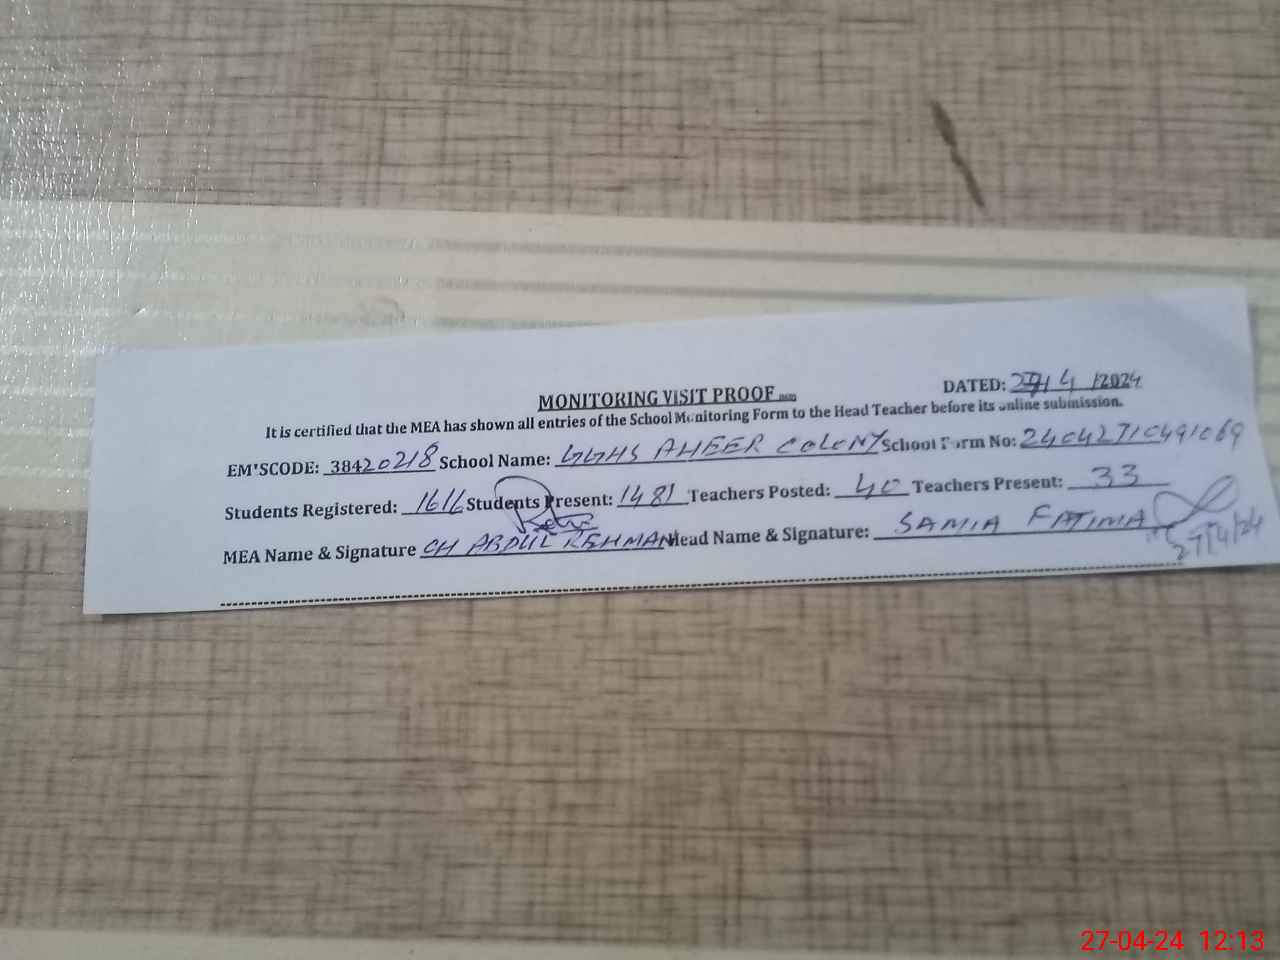 MONITORING VISIT PROOF
DATED: 27/4/2024
It is certified that the MEA has shown all entries of the School Monitoring Form to the Head Teacher before its online submission.
EMISCODE: 38420218 School Name: GGHS AHEER COLONY School Form No: 24042710491069
Students Registered: 1616 Students Present: 1481 Teachers Posted: 40 Teachers Present: 33
MEA Name & Signature CH ABDUL REHMAN Head Name & Signature: SAMIA FATIMA
27/4/24
27-04-24 12:13